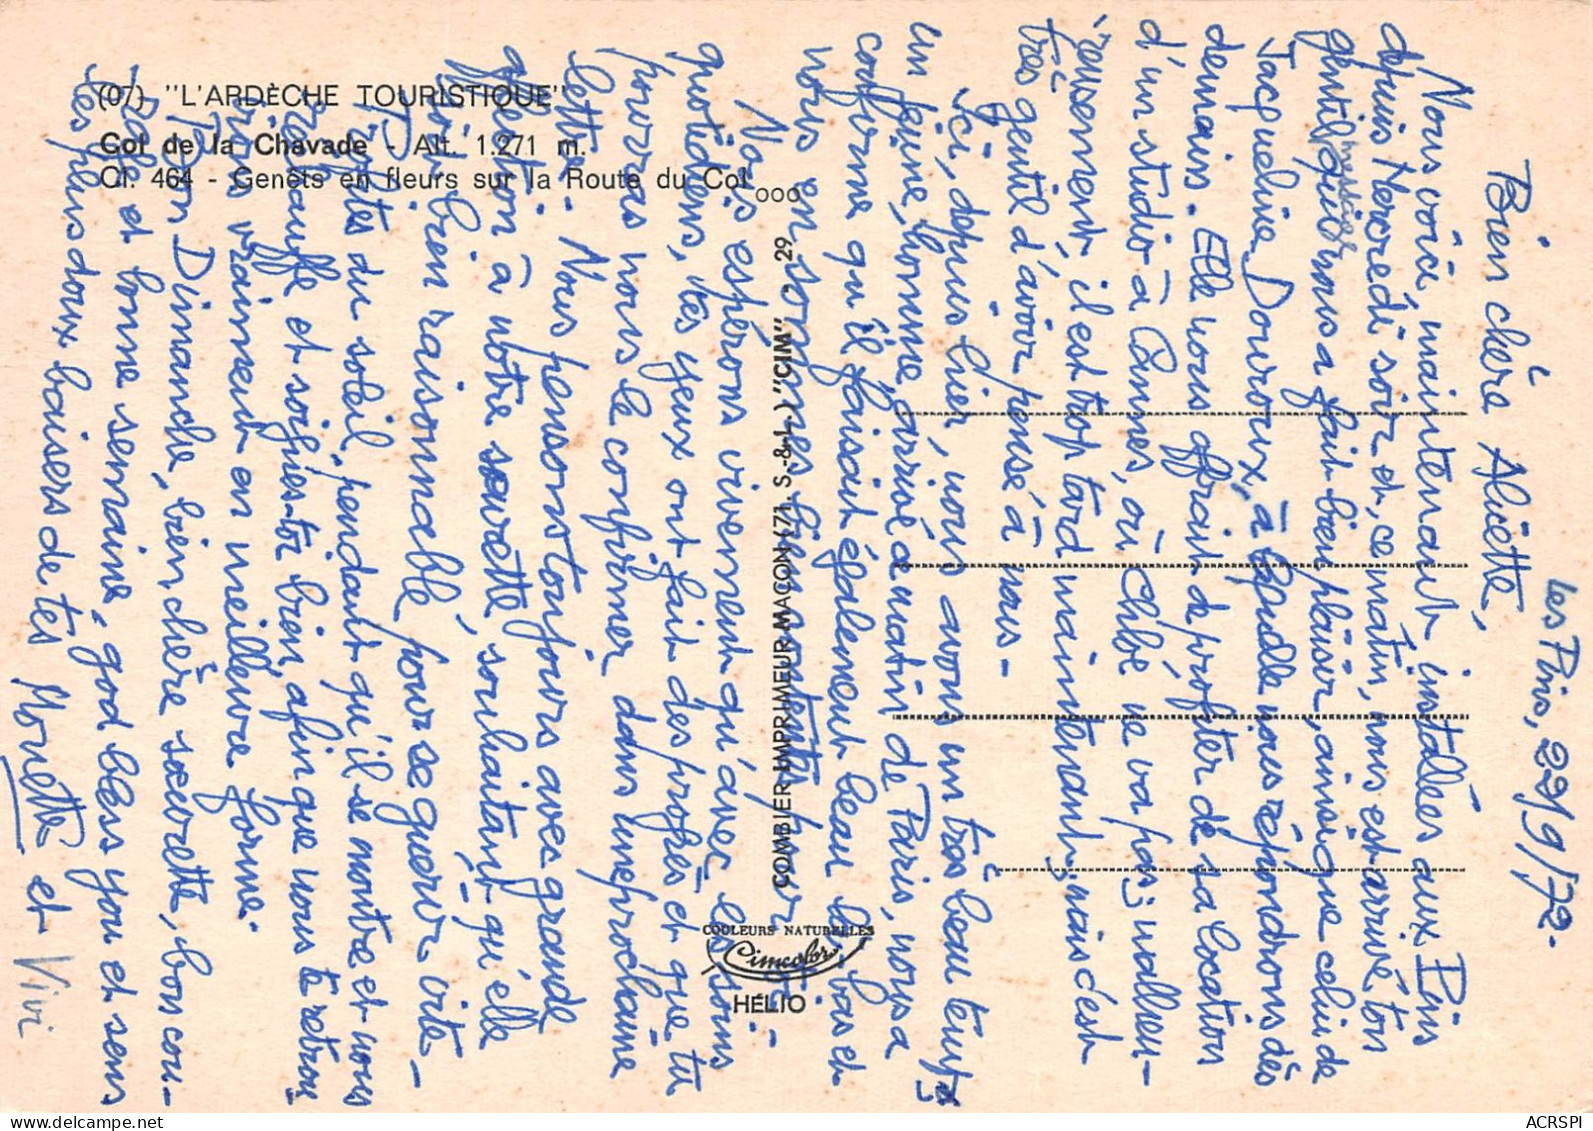 (07) "L'ARDÈCHE TOURISTIQUE"
Col de la Chavade - Alt. 1.271 m.
Cl. 464 - Genêts en fleurs sur la Route du Col
COMBIER IMPRIMEUR MACON (71, S.-&-L.) "CIM" 29
COULEURS NATURELLES
Cimcolor
HÉLIO
Les Pins, 22/9/72.
Bien chère Aliette,
Nous voici, maintenant, installées aux Pins
depuis Mercredi soir et, ce matin, nous est arrivé ton
gentil message qui nous a fait bien plaisir, ainsi que celui de
Jacqueline Douroux, à laquelle nous répondrons dès
demain. Elle nous offrait de profiter de sa location
d'un studio à Cannes, où Chloé ne va pas; malheu-
reusement, il est trop tard maintenant, mais c'est
très gentil d'avoir pensé à nous -
Ici, depuis hier, nous avons un très beau temps
un jeune homme, arrivé ce matin de Paris, nous a
confirmé qu'il faisait également beau là-bas et
nous en sommes bien contentes pour toi.
Nous espérons vivement qu'avec les soins
quotidiens, tes yeux ont fait des progrès et que tu
pourras nous le confirmer dans une prochaine
lettre. Nous pensons toujours avec grande
affection à notre sœurette, souhaitant qu'elle
soit bien raisonnable, pour se guérir vite -
Profites du soleil, pendant qu'il se montre et nous
réchauffe et soignes-toi bien, afin que nous te retrou-
vions vraiment en meilleure forme.
Bon Dimanche, bien chère sœurette, bon cou-
rage et bonne semaine, god bless you et sens
les plus doux baisers de tes Mouette et Vivi
ACRSPI